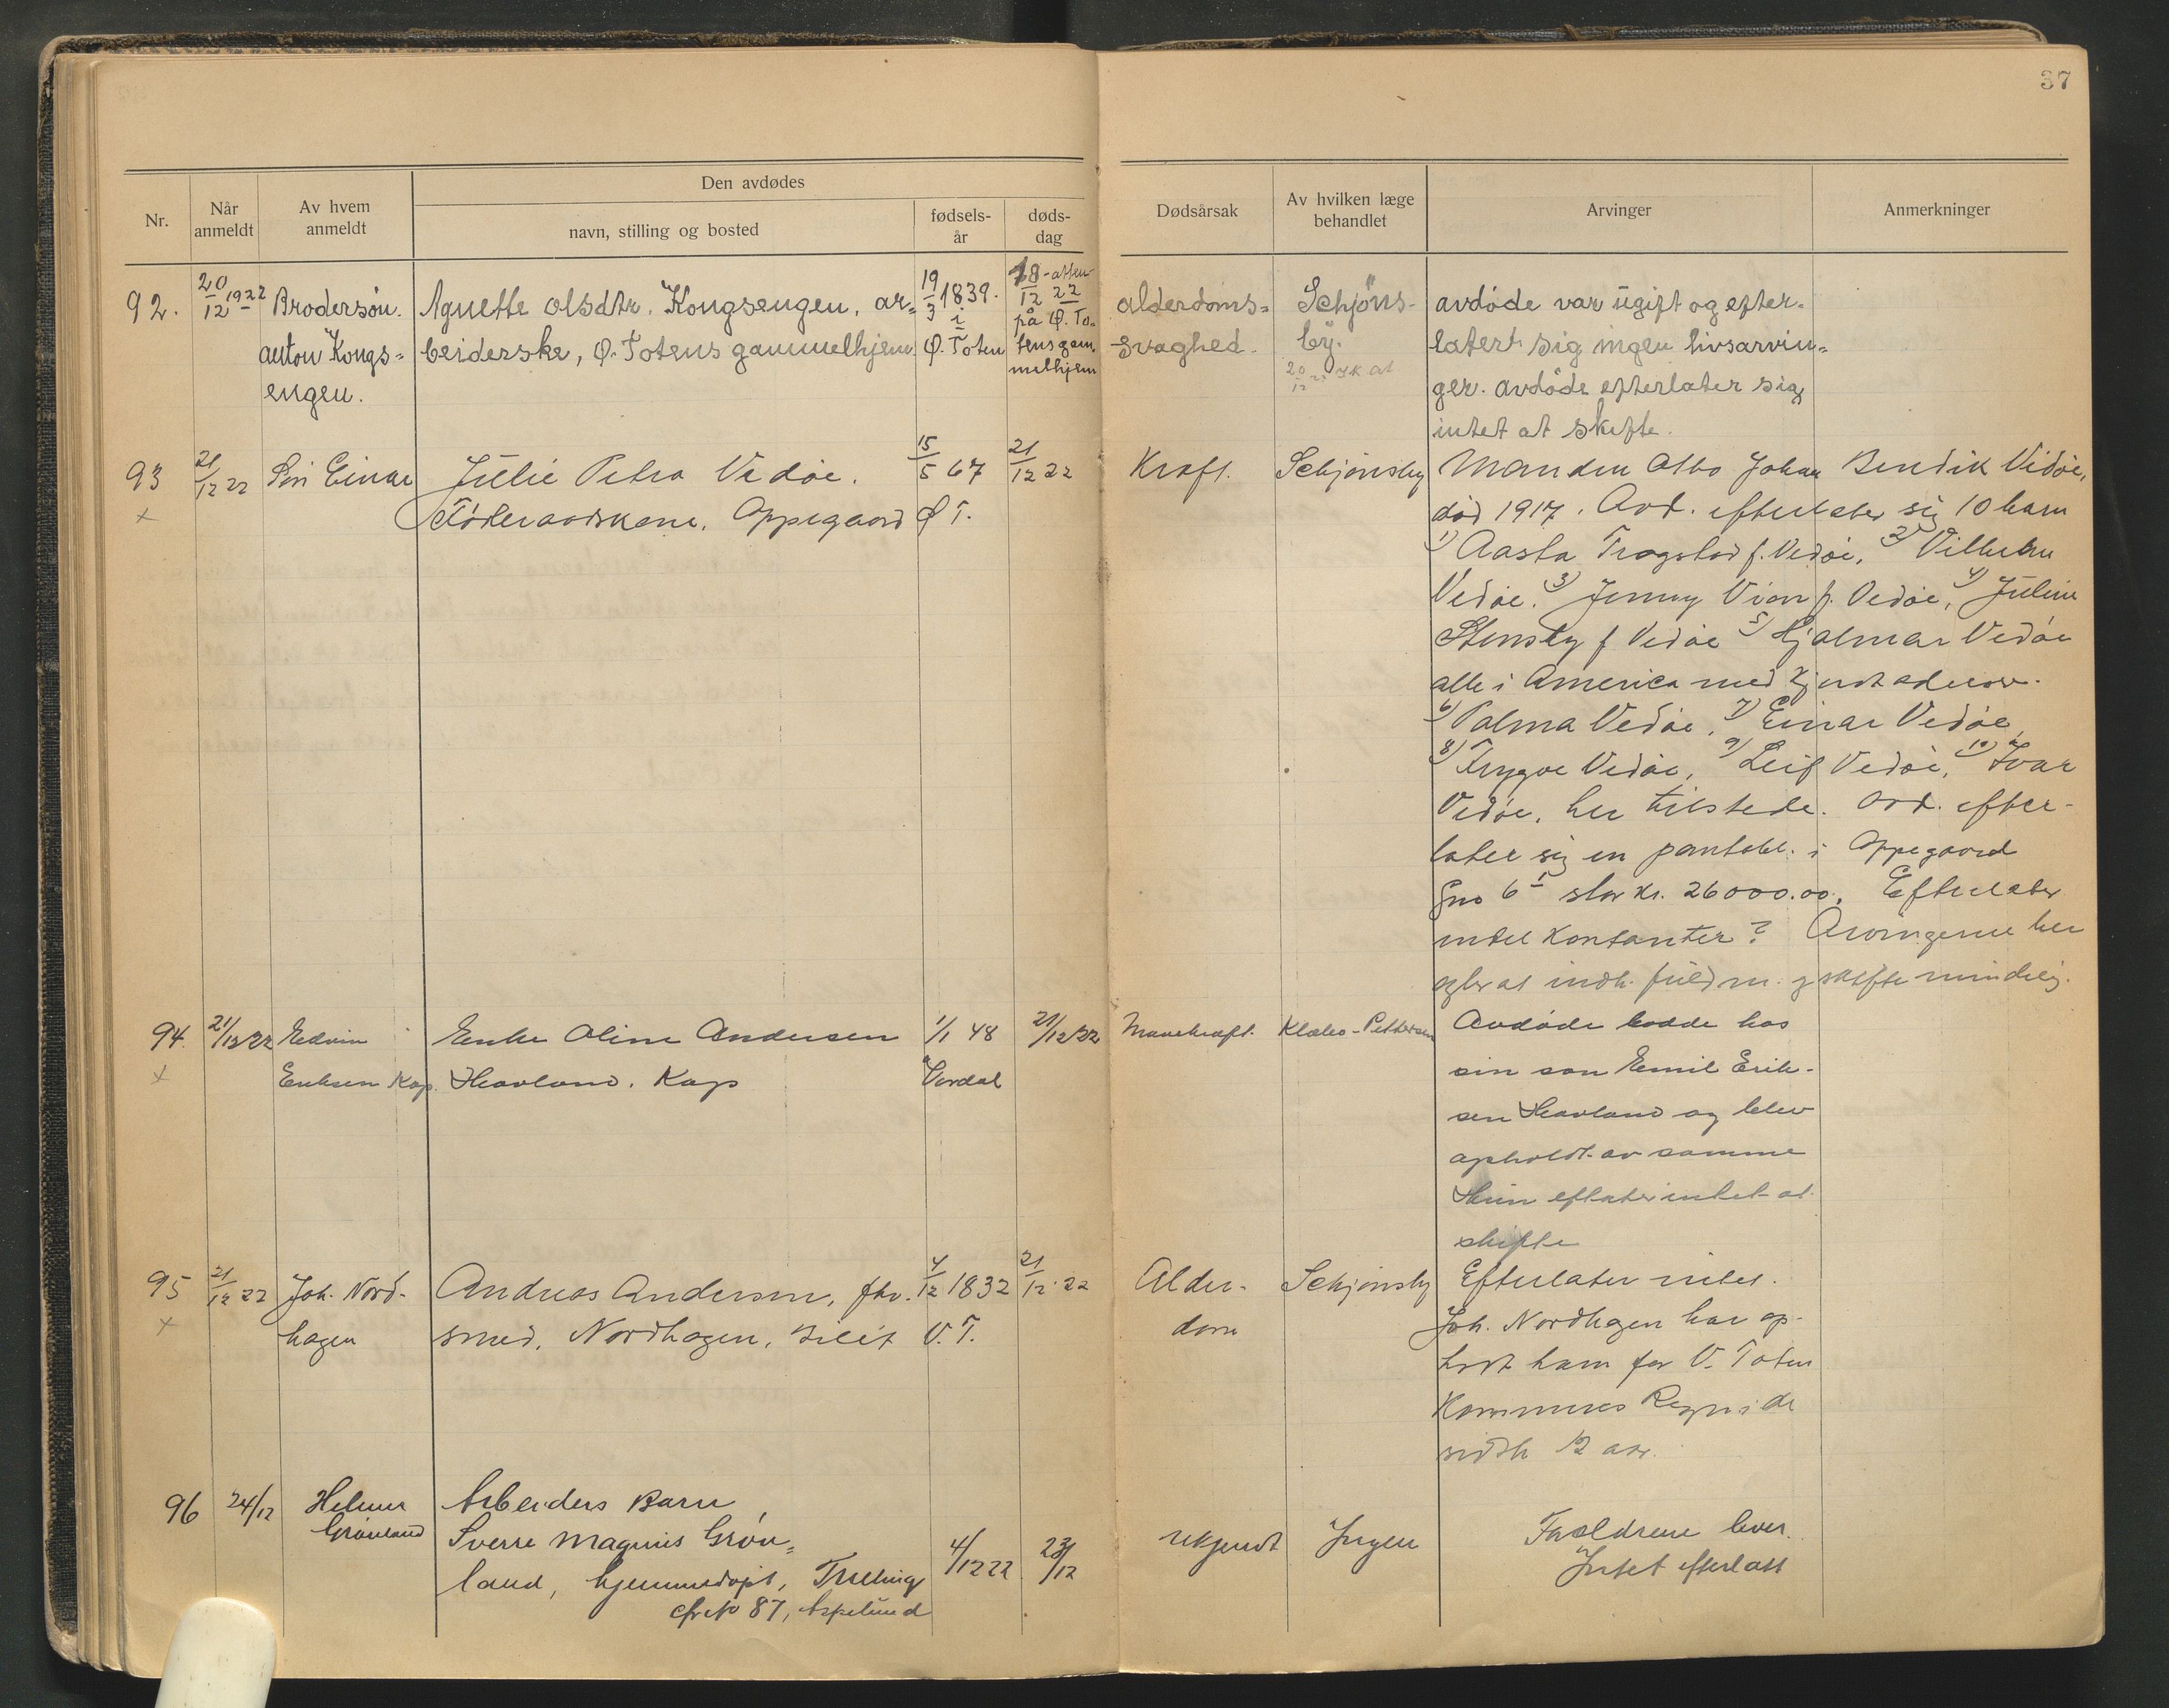 37
Nr.
Når anmeldt
Av hvem anmeldt
Den avdødes
navn, stilling og bosted
fødsels-år
døds-dag
Dødsårsak
Av hvilken læge behandlet
Arvinger
Anmerkninger
92.
20/12 1922
Brodersøn.
Anton Kongs=
engen.
Agnette Olsdtr. Kongsengen, ar=
beiderske, Ø. Totens gammelhjem.
19/3 1839.
i
Ø. Toten
18-atten
12 22
på Ø. To-
tens gam
melhjem
Alderdoms=
svaghed.
Schjøns-
by.
20/12
avdøde var ugift og efter-
latert sig ingen livsarvin=
ger. avdøde efterlater sig
intet at skifte.
93
x
21/12 22
Søn Einar
Julie Petra Vedøe.
Føderaadskone. Oppegaard
15/5 67
Ø T.
21/12 22
Kræft.
Schjønsby
Manden Otto Johan Bendik Vedøe,
død 1917. Avd. efterlater sig 10 barn
1) Aasta Trogstad f. Vedøe, 2) Vilhelm
Vedøe. 3) Jenny Vion f. Vedøe, 4) Juline
Stensby f Vedøe 5) Hjalmar Vedøe
alle i America med kjendt adresse.
6) Palma Vedøe, 7) Einar Vedøe,
8) Trygve Vedøe, 9) Leif Vedøe, 10) Ivar
Vedøe, her tilstede. Avd. efter-
later sig en pantobl. i Oppegaard
Gno 6 1 stor kr. 26000.00. Efterlater
endel kontanter? Arvingerne her
agter at indh. fuldm. og skifte mindelig.
94.
x
21/12 22
Edvin
Eriksen Kap.
Enke Oline Andersen
Hovland. Kap
1/1 48
Verdal
21/12 22
Mavekræft.
Klæbo-Pettersen
Avdøde bodde hos
sin søn Emil Erik-
sen Hovland og blev
opholdt av samme
Hun eflater intet at
skifte
95
x
21/12 22
Joh. Nord-
hagen
Andreas Andersen, fhv.
smed, Nordhagen, Bilit
4/12 1832
V. T.
21/12 22
Alder-
dom
Schjønsby
Efterlater intet.
Joh. Nordhagen har op-
holdt ham for V. Toten
Kommunes Regn i de
sidste 12 aar.
96
24/12
Helmer
Grønland
Arbeiders Barn
Sverre Magnus Grøn=
land, hjemmedøpt, Tvilling
cfr No 87, Aspelund
4/12 22
23/12
ukjendt
Ingen
Forældrene lever.
Intet efterlatt